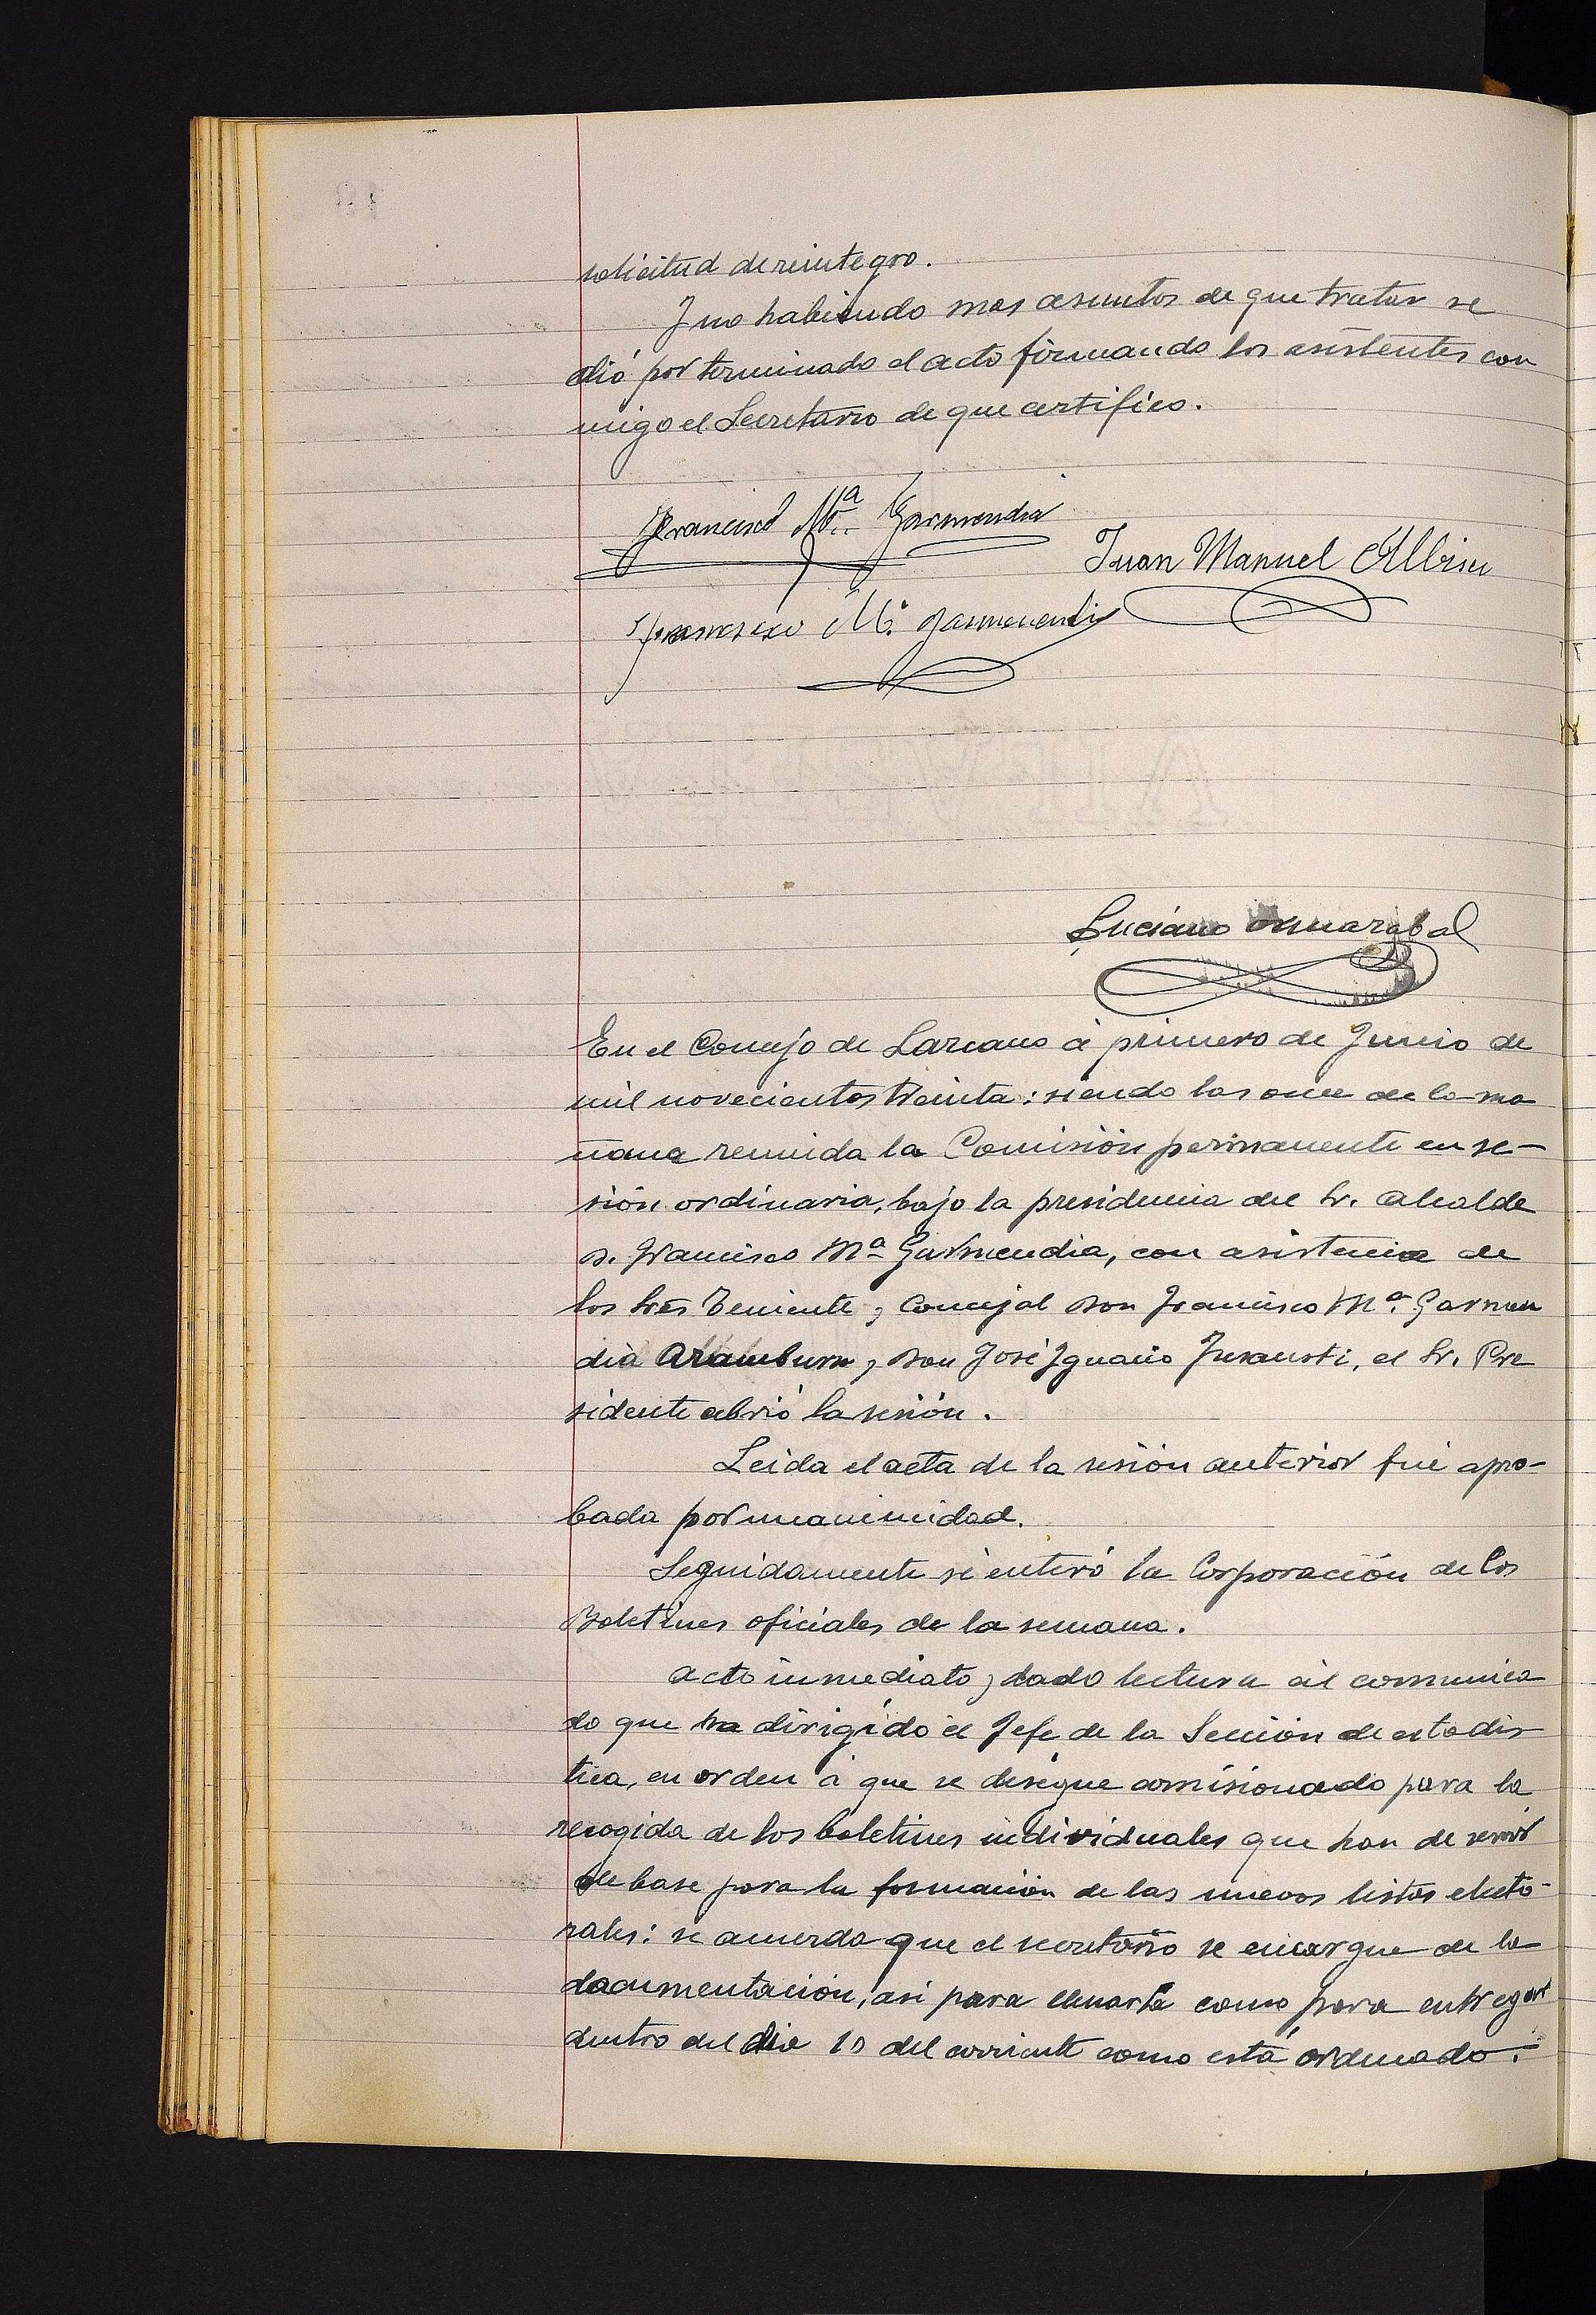 solicitud de reintegro.
Y no habiendo mas asuntos de que tratar se
dió por terminado el acto firmando los asistentes con
migo el Secretario de que certifico.
Francisco Mª Garmendia
Juan Manuel Albisu
Francisco Mª Garmendia
Luciano
En el Concejo de Lazcano á primero de Junio de
mil novecientos treinta: siendo las once de la ma
ñana reunida la Comisión permanente en se-
sión ordinaria, bajo la presidencia del Sr. Alcalde
D. Francisco Mª Garmendia, con asistencia de
los Sres Teniente y Concejal Don Francisco Mª Garmen
dia Aramburu y Don José Ygnacio Yurausti, el Sr. Pre
sidente abrió la sesión.
Leida el acta de la sesión anterior fué apro-
bada por unanimidad.
Seguidamente se enteró la Corporación de los
Boletines oficiales de la semana.
Acto inmediato y dado lectura al comunica
do que ha dirigido el Jefe de la Sección de estadis
tica, en orden á que se desigue comisionado para la
recogida de los boletines individuales que han de servir
de base para la formación de las nuevas listas electo-
rales: se acuerda que el secretario se encargue de la
documentación, asi para como para entregar
dentro del dia 10 del corriente como está ordenado.